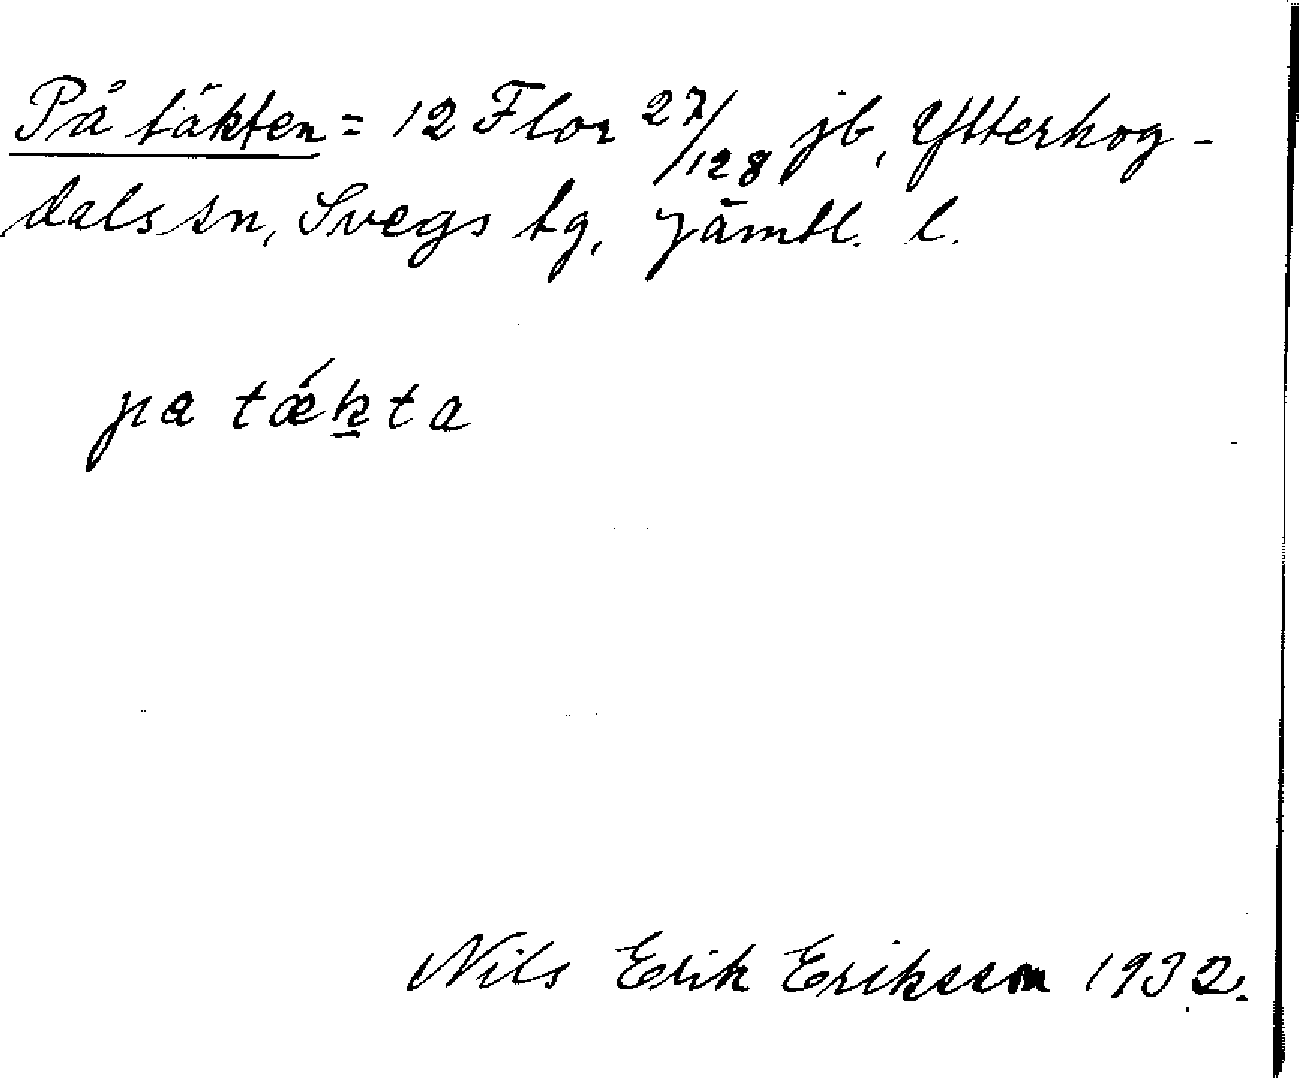 På täkten = 12 Flor 27/128 jb, Ytterhog-
dals sn, Svegs tg, Jämtl. l.
pa tǽk̠ta
Nils Erik Eriksson 1932.